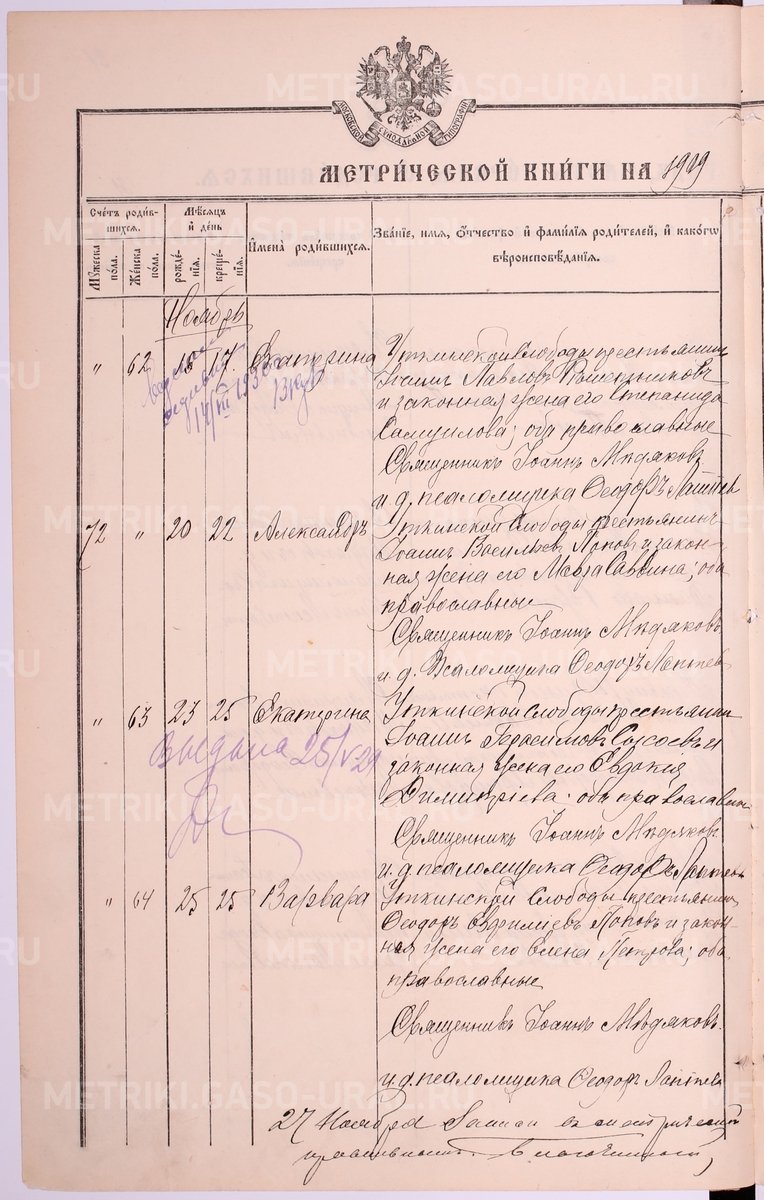 METRIKI.GASO-URAL.RU
МЕТРИ́ЧЕСКОЙ КНИ́ГИ НА 1909
Счетъ родив-
шихся.
Мѣсяцъ
и день
Имена̀ родившихся.
Зва́ніе, имя, о́тчество и фами́лія родителей, и како́гѡ
вѣроисповѣ́данія.
Му́жеска
по́ла.
Же́нска
по́ла.
рожде-
нія.
креще́-
нія.
Ноябрь
" 62 15 17 Екатерина Уткинской Слободы крестьянинъ
Іоаннъ Павловъ
и законная жена его Степанида
Самуилова; оба православные
Священникъ Іоаннъ Мѣдяковъ
и. д. псаломщика Ѳеодоръ Лаптевъ
14/VII 193
72 " 20 22 Александръ Уткинской Слободы крестьянинъ
Іоаннъ Васильевъ Поповъ и закон-
ная жена его Мавра Саввина; оба
православные
Священникъ Іоаннъ Мѣдяковъ
и. д. Псаломщика Ѳеодоръ Лаптевъ
" 63 23 25 Екатерина Уткинской Слободы крестьянинъ
Іоаннъ Герасимовъ Сысоевъ и
законная жена его Евдокія
Димитріева; оба православные
Выдана 25/V 29
Священникъ Іоаннъ Мѣдяковъ
и. д. псаломщика Ѳеодоръ Лаптевъ
" 64 25 25 Варвара Уткинской Слободы крестьянинъ
Ѳеодоръ Евфиміевъ Поповъ и закон-
ная жена его Елена Петрова; оба
православные
Священникъ Іоаннъ Мѣдяковъ
и. д. псаломщика Ѳеодоръ Лаптевъ
27 Ноября